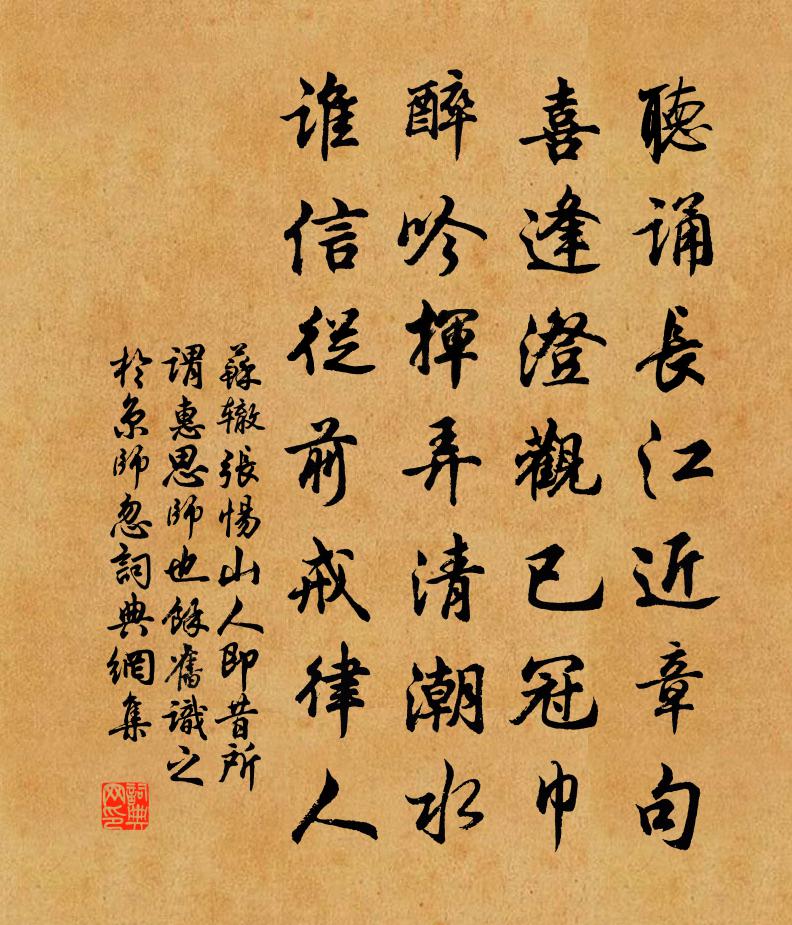 聽誦長江近章句
喜逢澄觀已冠巾
醉吟揮弄清潮水
誰信從前戒律人
蘇辙張惕山人即昔所
謂惠思師也餘舊識之
於京師忽詞典網集
詞典網印